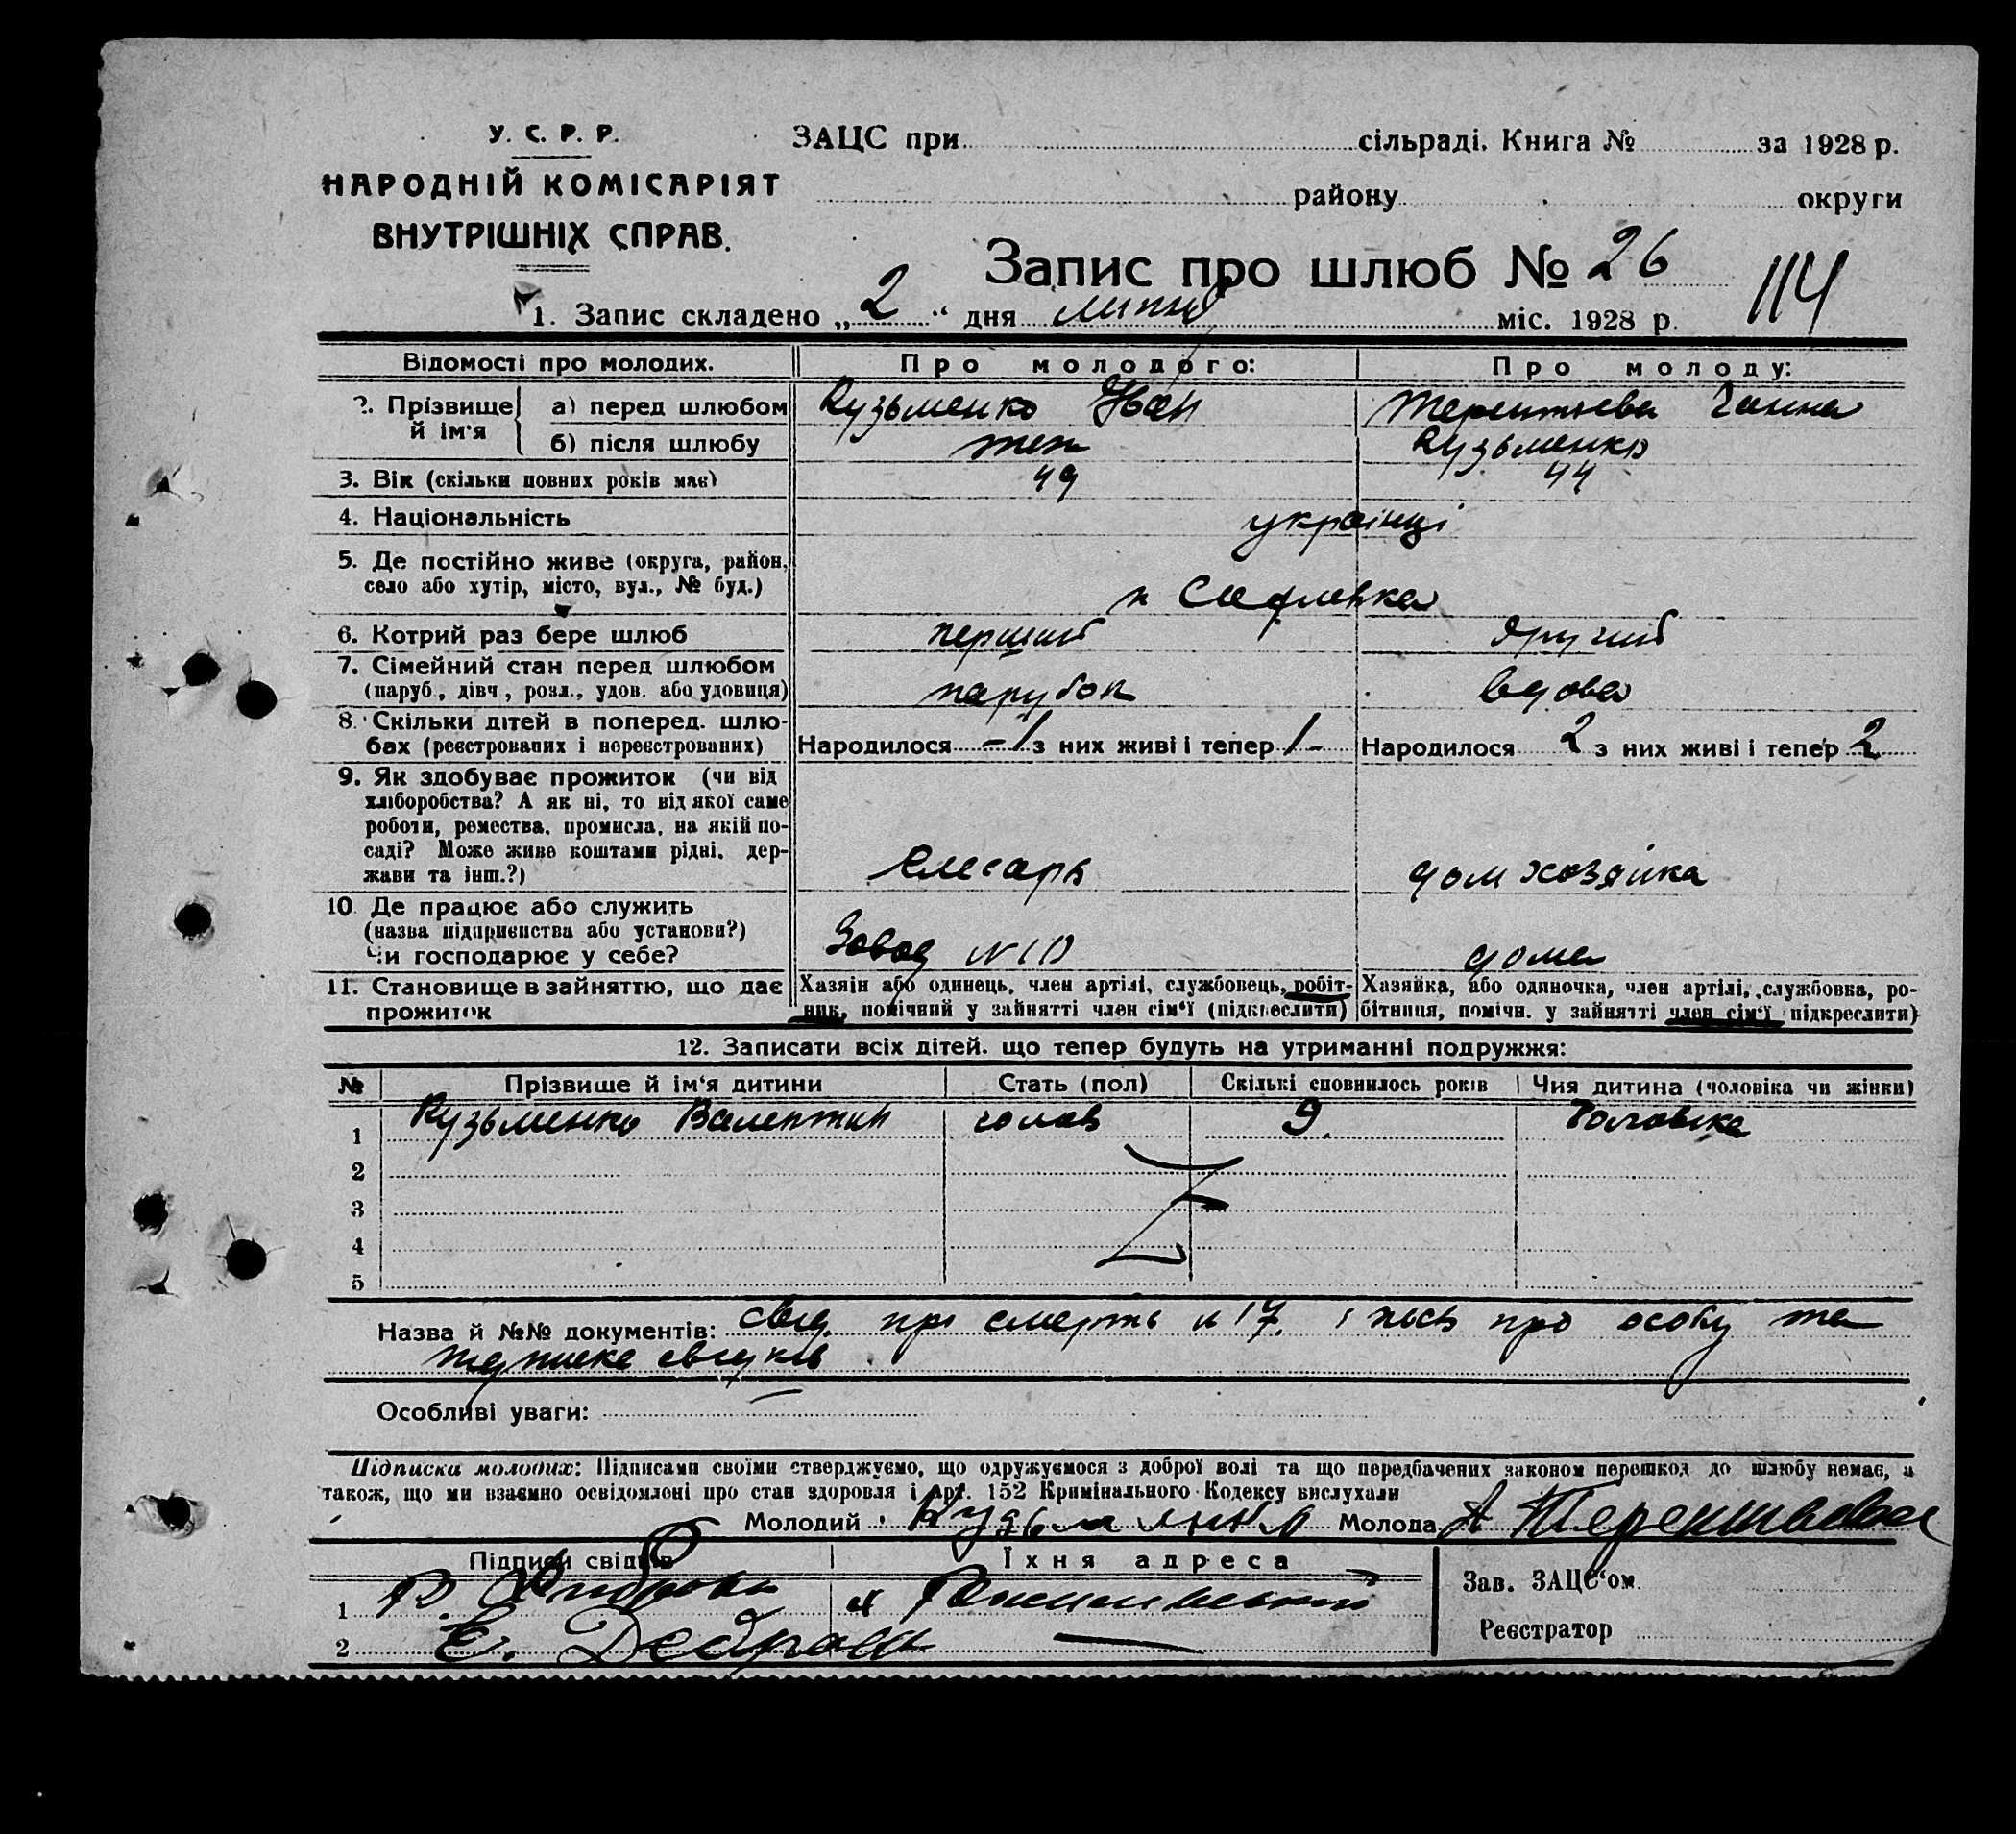 У. С. Р. Р.
НАРОДНІЙ КОМІСАРІЯТ
ВНУТРІШНІХ СПРАВ.
ЗАЦС при сільраді. Книга № за 1928 р.
району округи
Запис про шлюб № 26
114
1. Запис складено „2“ дня липня міс. 1928 р.
Відомості про молодих. Про молодого: Про молоду:
2. Прізвище й ім'я а) перед шлюбом Кузьменко Іван Терентьева Ганна
б) після шлюбу теж Кузьменко
3. Вік (скільки повних років має) 49 44
4. Національність українці
5. Де постійно живе (округа, район, село або хутір, місто, вул., № буд.)
6. Котрий раз бере шлюб перший другий
7. Сімейний стан перед шлюбом (паруб., дівч., розл., удов. або удовиця) парубок вдова
8. Скільки дітей в поперед. шлюбах (реєстрованих і нереєстрованих) Народилося -1 з них живі і тепер 1- Народилося 2 з них живі і тепер 2
9. Як здобуває прожиток (чи від
хліборобства? А як ні, то від якої саме
роботи, ремества, промисла, на якій по-
саді? Може живе коштами рідні, дер-
жави та інш.?) слесарь дом хозяйка
10 Де працює або служить
(назва підприємства або установи?)
Чи господарює у себе? Завод N 10 дома
11. Становище в зайняттю, що дає прожиток
Хазяін або одинець, член артілі, службовець, робіт-
ник, помічний у зайнятті член сім'ї (підкреслити)
Хазяйка, або одиночка, член артілі, службовка, ро-
бітниця, помічн. у зайнятті член сім'ї підкреслити)
12. Записати всіх дітей. що тепер будуть на утриманні подружжя:
№ Прізвище й ім'я дитини Стать (пол) Скількі сповнилось років Чия дитина (чоловіка чи жінки)
1 Кузьменко Валентин чолов 9 Чоловіка
2
3
4
5
Назва й №№ документів: свід. про смерть N 17. і посв про особу та
підписка свідків
Особливі уваги: —
Підписка молодих: Підписами своїми стверджуємо, що одружуємося з доброї волі та що передбачених законом перешкод до шлюбу немає, а
також, що ми взаємно освідомлені про стан здоровля і арт. 152 Кримінального Кодексу вислухали
Молодий Кузьменко Молода А Терентьева
Підписи свідків Їхня адреса
1
2 Е.
Зав. ЗАЦС'ом
Реєстратор